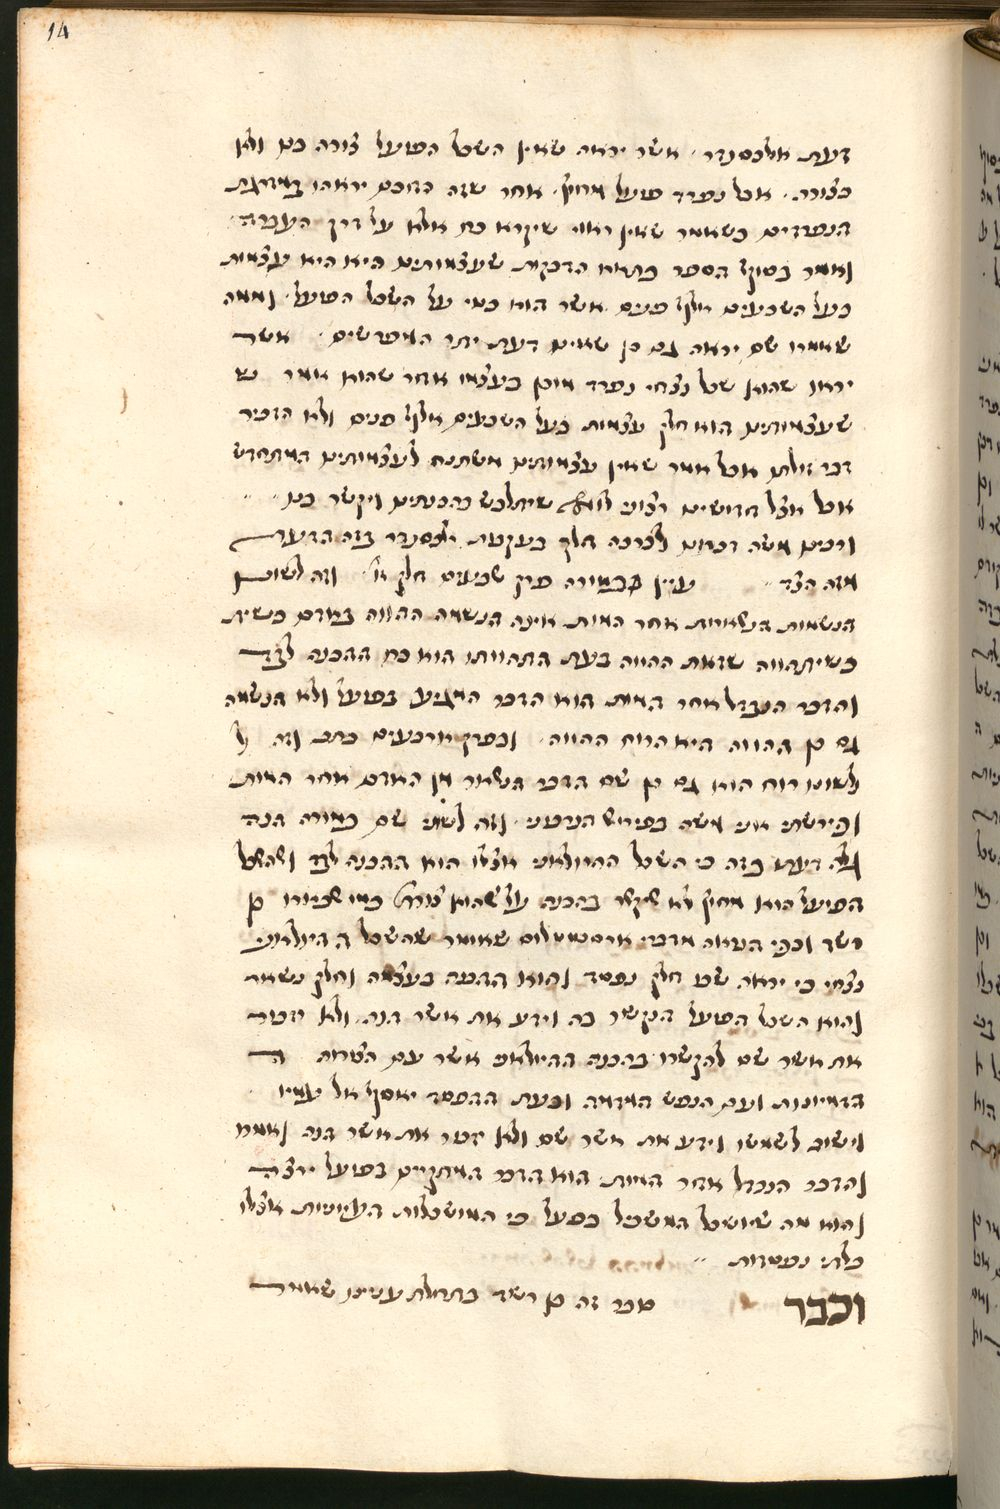 14
דעת אלכסנדר אשר יראה שאין השכל הפועל צורה בם ולא
כצורה אבל נפרד פועל מחוץ אחר שזה החכם יראהו במדרגת
הנפרדים כשאמר שאין ראוי שיקרא כח אלא על דרך העברה
ואמר בסוף הספר בתוא הדבקות שעצמותם היא היא עצמות
בעל השבעים אלף פנים אשר הוא כנוי על השכל הפועל ואמנם
שאמרו שם יראה גם כן שאינו דעת יתר המפרשים אשר
יראו שהוא שכל נצחי נפרד בעצמו אחר שהוא אמר
שעצמותם הוא חלק עצמות בעל השבעים אלף פנים ולא הזכיר
דבר זולת אבל אמר שאין עצמותם משתנה לעצמותם המתחדש
אבל אצל חדושים רצוני שיתלבש בהכנתם ויקשר בם
ורבים משה נרבוני לברכה הלך בעקבות אלכסנדר בזה הדעת
מזה הצד עיין במורה פרק שבעים חלק א' וזה לשונו
הנשמות הנשארות אחר המות אינה הנשמה ההווה באדם כשית
כשיתהווה שזאת ההווה בעת התהוותו הוא כח ההכנה לבד
והדבר הנבדל אחר המות הוא הדבר המגיע בפועל ולא הנשמה
גם כן ההווה היא הרוח ההווה ובפרק ארבעים כתב וזה ל
לשונו רוח הוא גם כן שם הדבר הנשאר מן האדם אחר המות
ופירשתי אני משה בפירוש הנרבוני וזה לשוני שם במורה הנה
גלה דעתו בזה כי השכל ההיולאני אצלו הוא ההכנה לבד ושהשכל
הפועל הוא מחוץ לא שיקשר בהכנה על שהוא צורה כמו שביארו בן
רשד וכפי הנראה מדברי ארסטוטלוס שאומר שהשכל ה ההיולאני
נצחי כי יראה שבו חלק נפסד והוא ההכנה בעצמה וחלק נשאר
והוא השכל הפועל הנקשר בה וידע את אשר הנה ולא יזכור
את אשר שם להקשרו בהכנה ההיולאנית אשר עם הצורות ה
הדמיוניות ועם הנפש המדמה ובעת ההפסד יאסף אל עמיו
וישוב לשמשו וידע את אשר שם ולא יזכור את אשר הנה ואמרו
והדבר הנבדל אחר המות הוא הדבר המתקיים בפועל ירצה
והוא מה שיושכל המשכיל בפועל כי המושכלות העיוניות אצלו
בלתי נפסדות
וכבר סבר זה בן רשד בתחלת עניינו שאמר